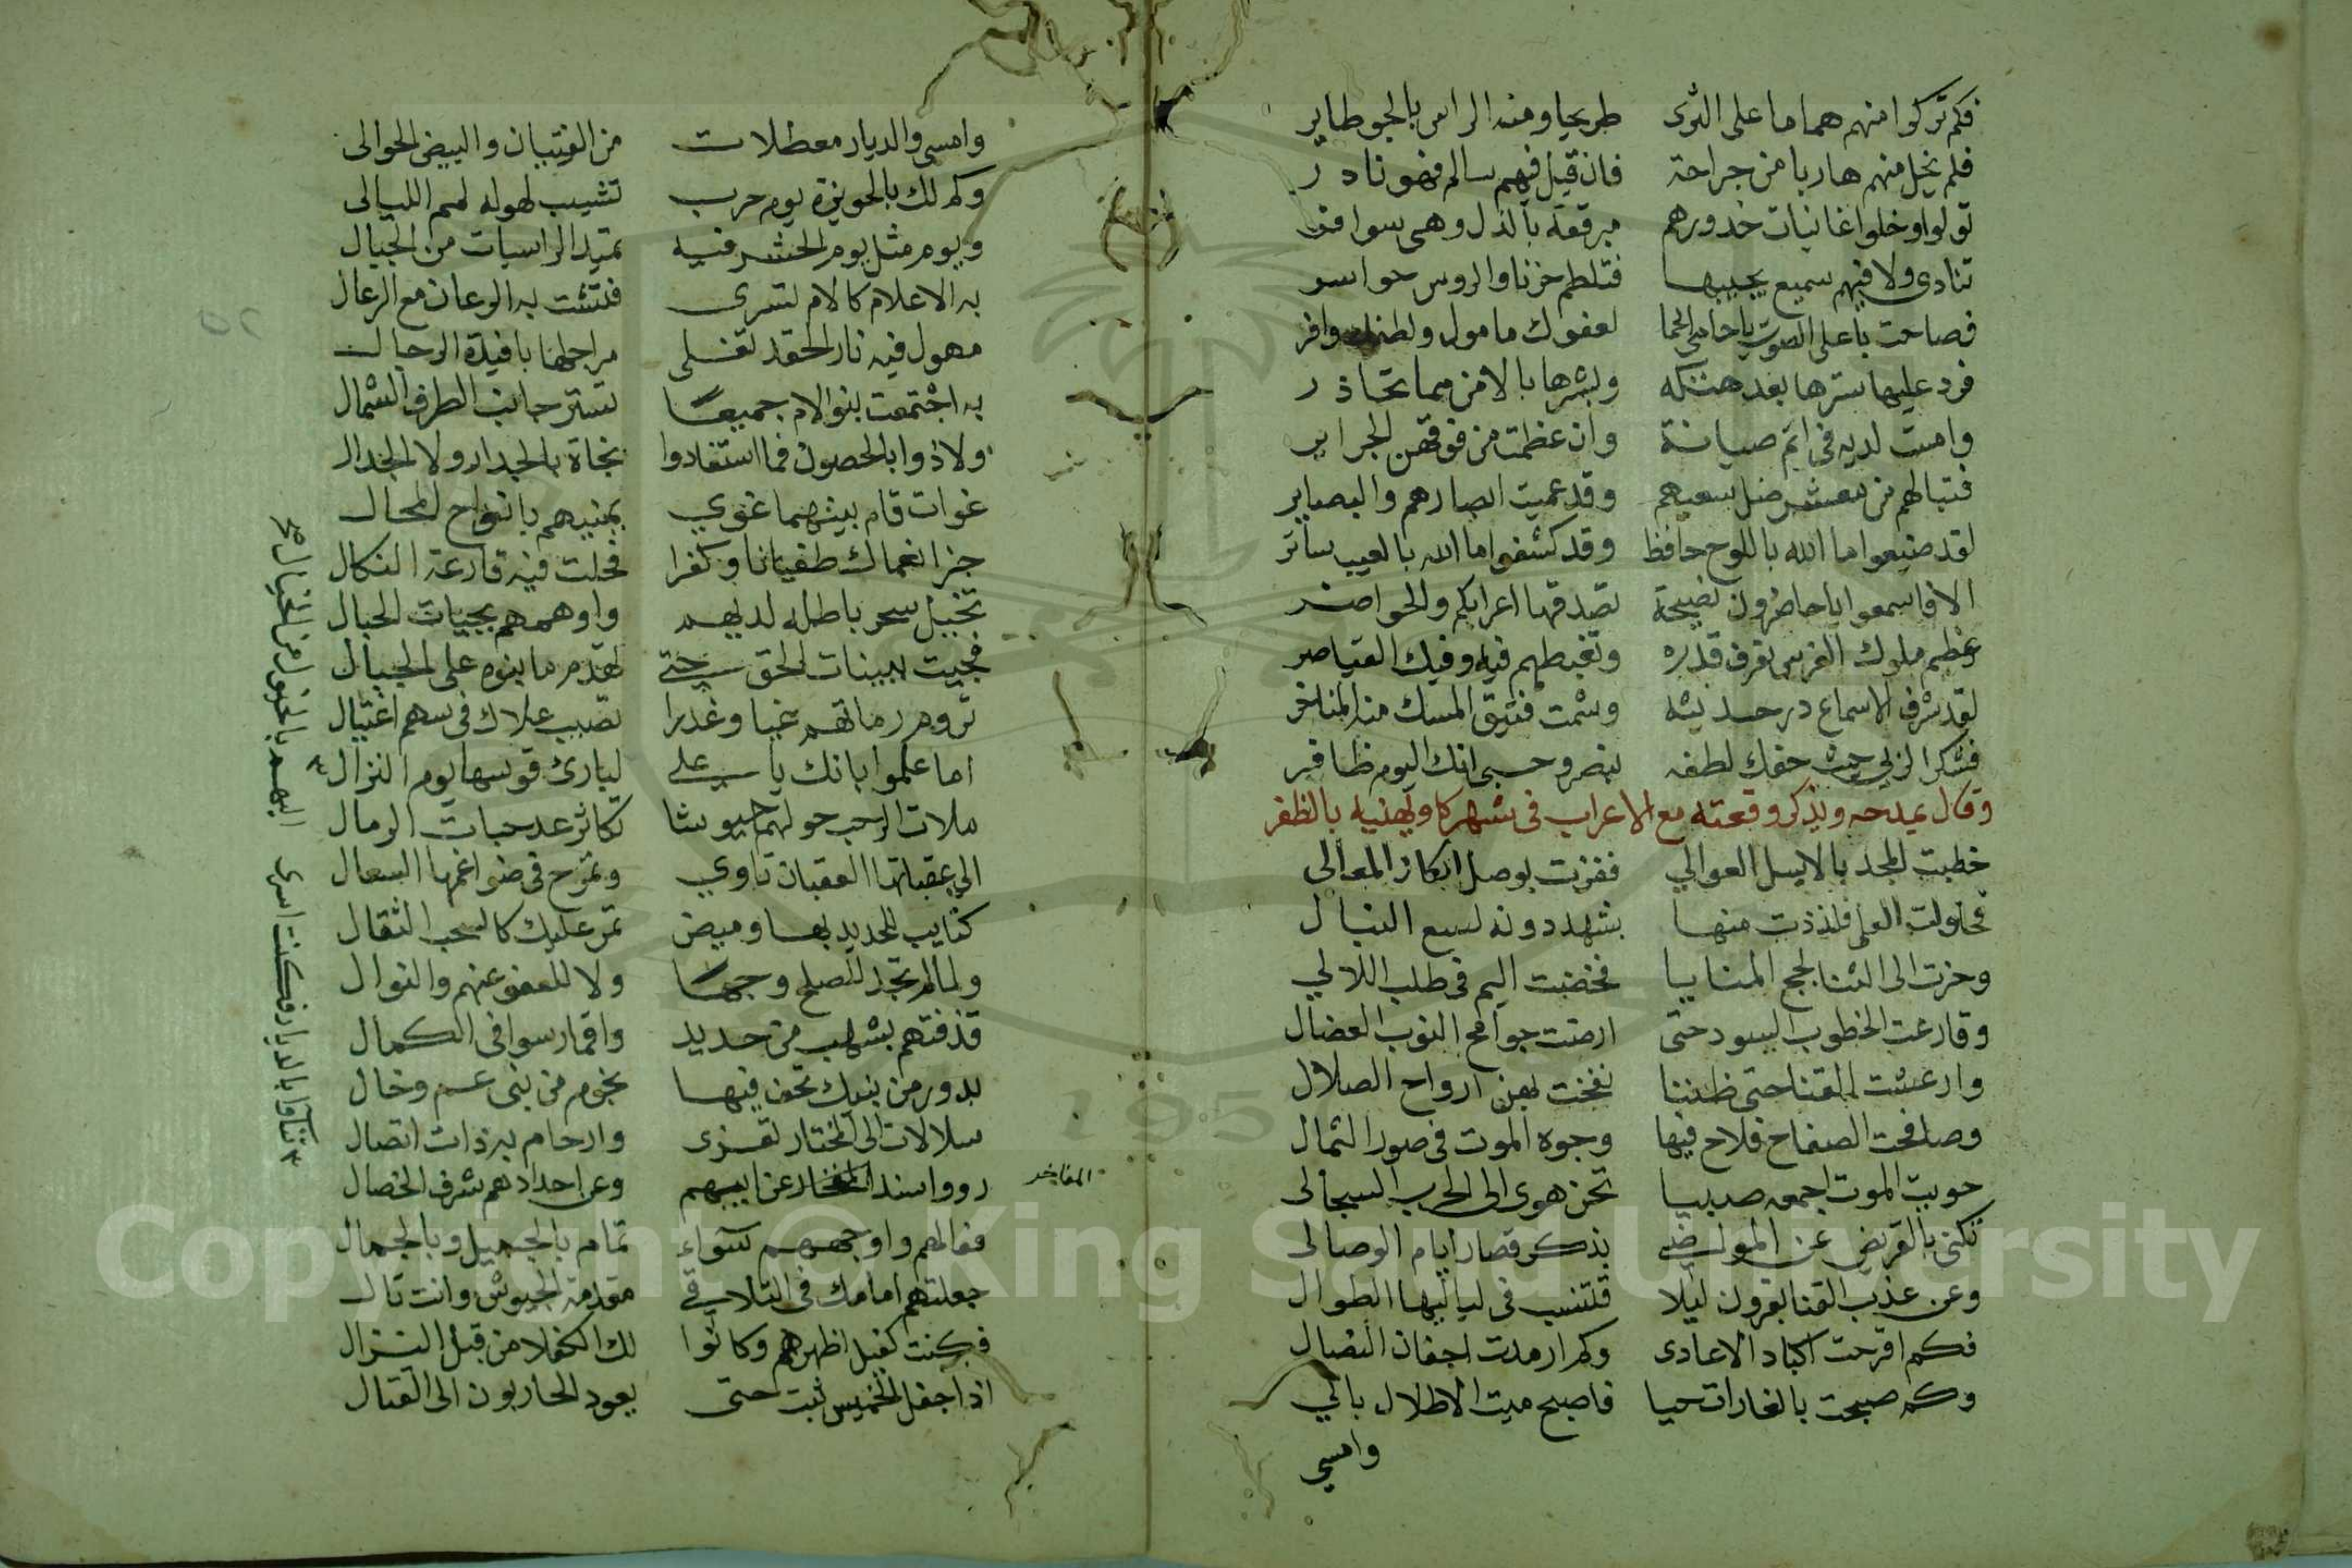 فكم تركوا منهم هماما على الثرى طريحا ومنه الراس بالجو طاير
فلم يخل منهم هاربا من جراحة فان قيل فيهم سالم فهو نادر
تولوا وخلوا غانيات خدورهم مبرقعة بالذل وهى سوافر
تنادى ولا فيهم سميع يجيبها فتلطم حزنا والروس حواسر
فصاحت باعلى الصوت يا حامى الحما لعفوك مامول ولطفك وافر
فرد عليها سترها بعد هتكه وبشرها بالامن مما تحاذر
وامست لديه فى اتم صيانة وان عظمت من فوقهن الجراير
فتبا لهم من معشر ضل سعيهم وقد عميت ابصارهم والبصاير
لقد ضيعوا ما الله باللوح حافظ وقد كشفوا ما الله بالعيب ساتر
الا فاسمعوا يا حاضرون نصيحة تصدقها اعرابكم والحواضر
عظيم ملوك الفرس تعرف قدره وتغبطهم فيه وفيك القياصر
لقد شرف الاسماع در حديثه وشمت فتيق المسك منه المناخر
فشكرا لربى حيث حفك لطفه بنصر وحسبى انك اليوم ظافر
وقال يمدحه ويذكر وقعته مع الاعراب فى شهركا ويهنيه بالظفر
خطبت المجد بالاسل العوالي ففزت بوصل ابكار المعالى
تحاولت العلى فلذذت منها بشهد دونه لسع النبال
وحزت الى الثنا لجج المنايا فخضت اليم فى طلب اللالي
وقارعت الخطوب السود حتى ارضت جوامح النوب العضال
وارعشت القنا حتى ظننا نفخت بهن ارواح الصلال
وصافحت الصفاح فلاح فيها وجوه الموت فى صور الثمال
حويت الموت اجمعه صبيبا تحن هوى الى الحرب السجالى
تكنى بالقريض عن المواضى بذكر قصار ايام الوصالى
وعن عذب القنا بقرون ليلا فتنسب فى لياليها الطوال
فكم اقرحت اكباد الاعادى وكم ارمدت اجفان النصال
وكم صبحت بالغارات حيا فاصبح ميت الاطلال بالي
وامسي
وامسى والديار معطلات من الفتيان والبيض الحوالى
وكم لك بالحويزة يوم حرب تشيب لهوله لمم الليالى
ويوم مثل يوم الحشر فيه تميد الراسيات من الجبال
به الاعلام كالارام تسرى
مهول فيه نار الحقد تغلى مراجلها بافيدة الرجال
به اجتمعت بنوا لام جميعا تستر جانب الطرف الشمال
ولاذوا بالحصون فما استفادوا نجاة بالجدار ولا الجدال
غوات قام بينهما غوي يمنيهم بانواح المحال
جزا نعماك طغيانا وكفرا فحلت فيه قارعة النكال
تخييل سحر باطله لديهم واوهمهم بجيات الحبال
فجيت ببينات الحق حتى لهدم ما بنوه على الخيال
تروم رماتهم غيا وغدرا تصيب علاك فى سهم اغتيال
اما علموا بانك يا على لبارئ قوسها يوم النزال
ملات الرحب حولهم جيوشا تكاثر عد حبات الرمال
الى عقباتها العقبان تاوي وتمرح فى ضواغمها السعال
كتايب للحديد بها وميض تمر عليك كالسحب الثقال
ولما لم تجد للصلح وجها ولا للعفو عنهم والنوال
قذفتهم بشهب من حديد واقمار سوا فى الكمال
بدور من بنيك تحف فيها نجوم من بنى عم وخال
سلالات الى المختار تعزى وارحام به ذات اتصال
رووا سند المفخار عن ابيهم وعن اجدادهم شرف الخصال
المفاخر
فعالهم واوجههم سواء تمام بالجميل وبالجمال
جعلتهم امامك فى التلاقي مقدمة الجيوش وانت تال
فكنت كفيل اظهرهم وكانوا لك الكفلا من قبل النزال
اذا جفل الخميس ثبت حتى يعود الحاربون الى القتال